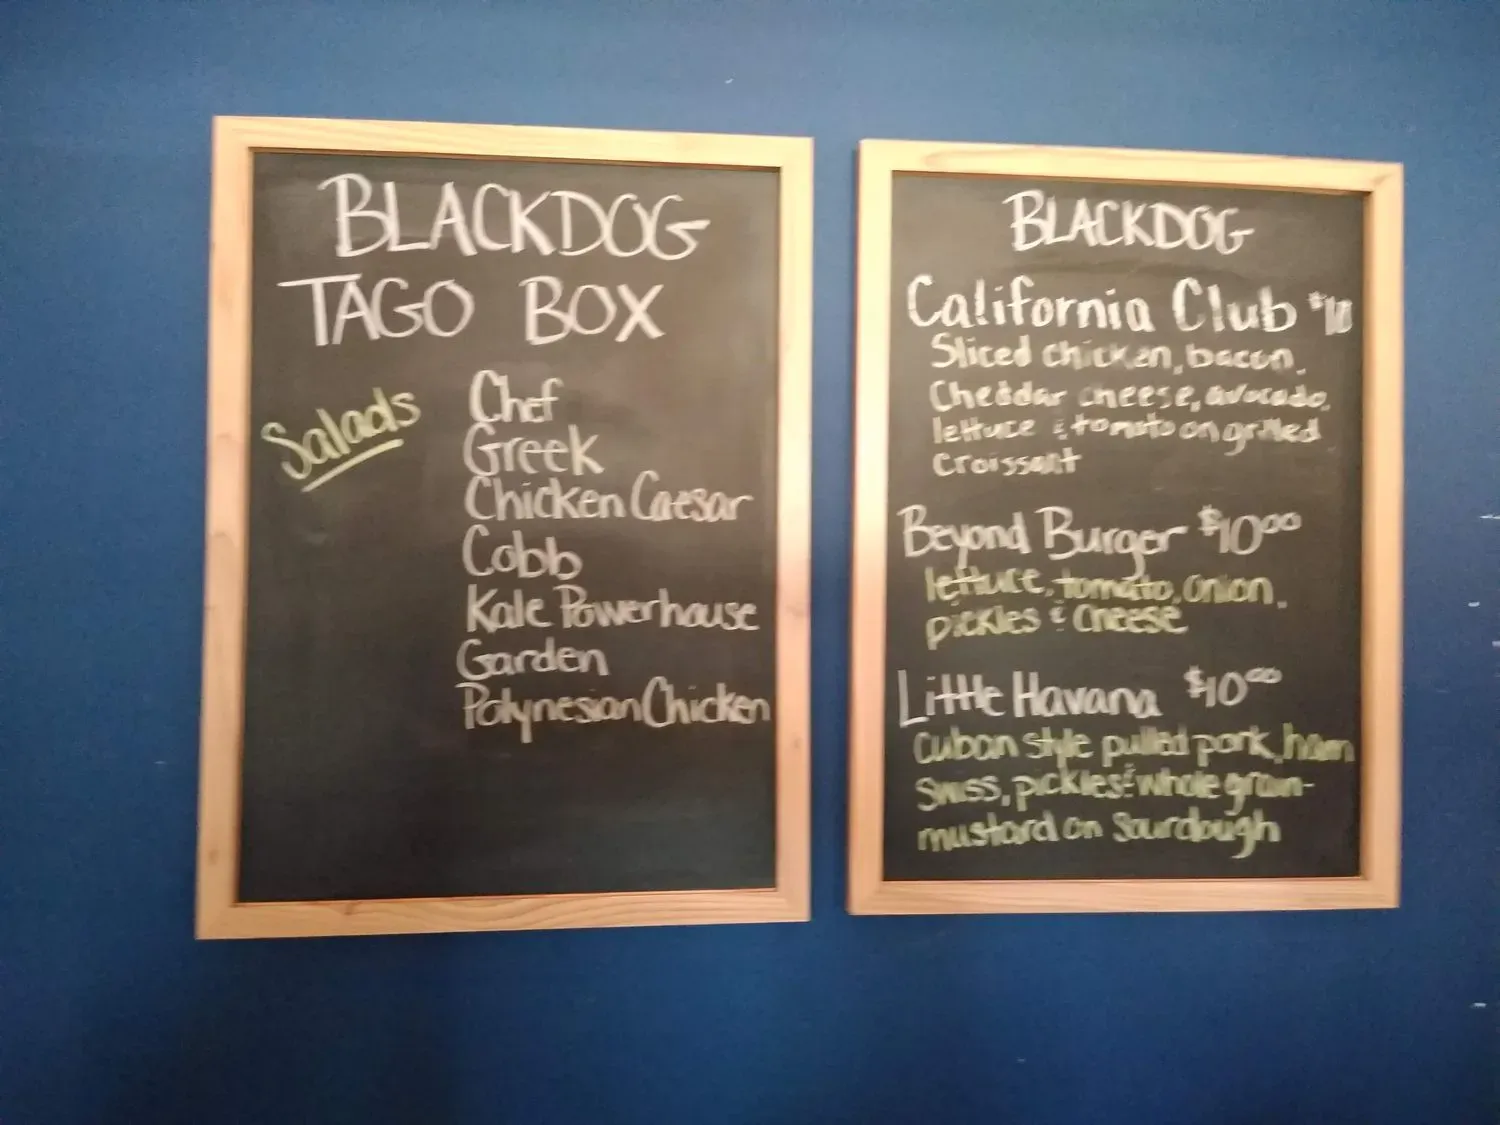 BLACKDOG
TAGO BOX
Salads
Chef
Greek
Chicken Caesar
Cobb
Kale Powerhouse
Garden
Polynesian Chicken
BLACKDOG
California Club $10
Sliced chicken, bacon,
Cheddar cheese, avocado,
lettuce & tomato on grilled
Croissant
Beyond Burger $10⁰⁰
lettuce, tomato, onion,
pickles & Cheese
Little Havana $10⁰⁰
Cuban style pulled pork, ham
Swiss, pickles & whole grain-
mustard on Sourdough